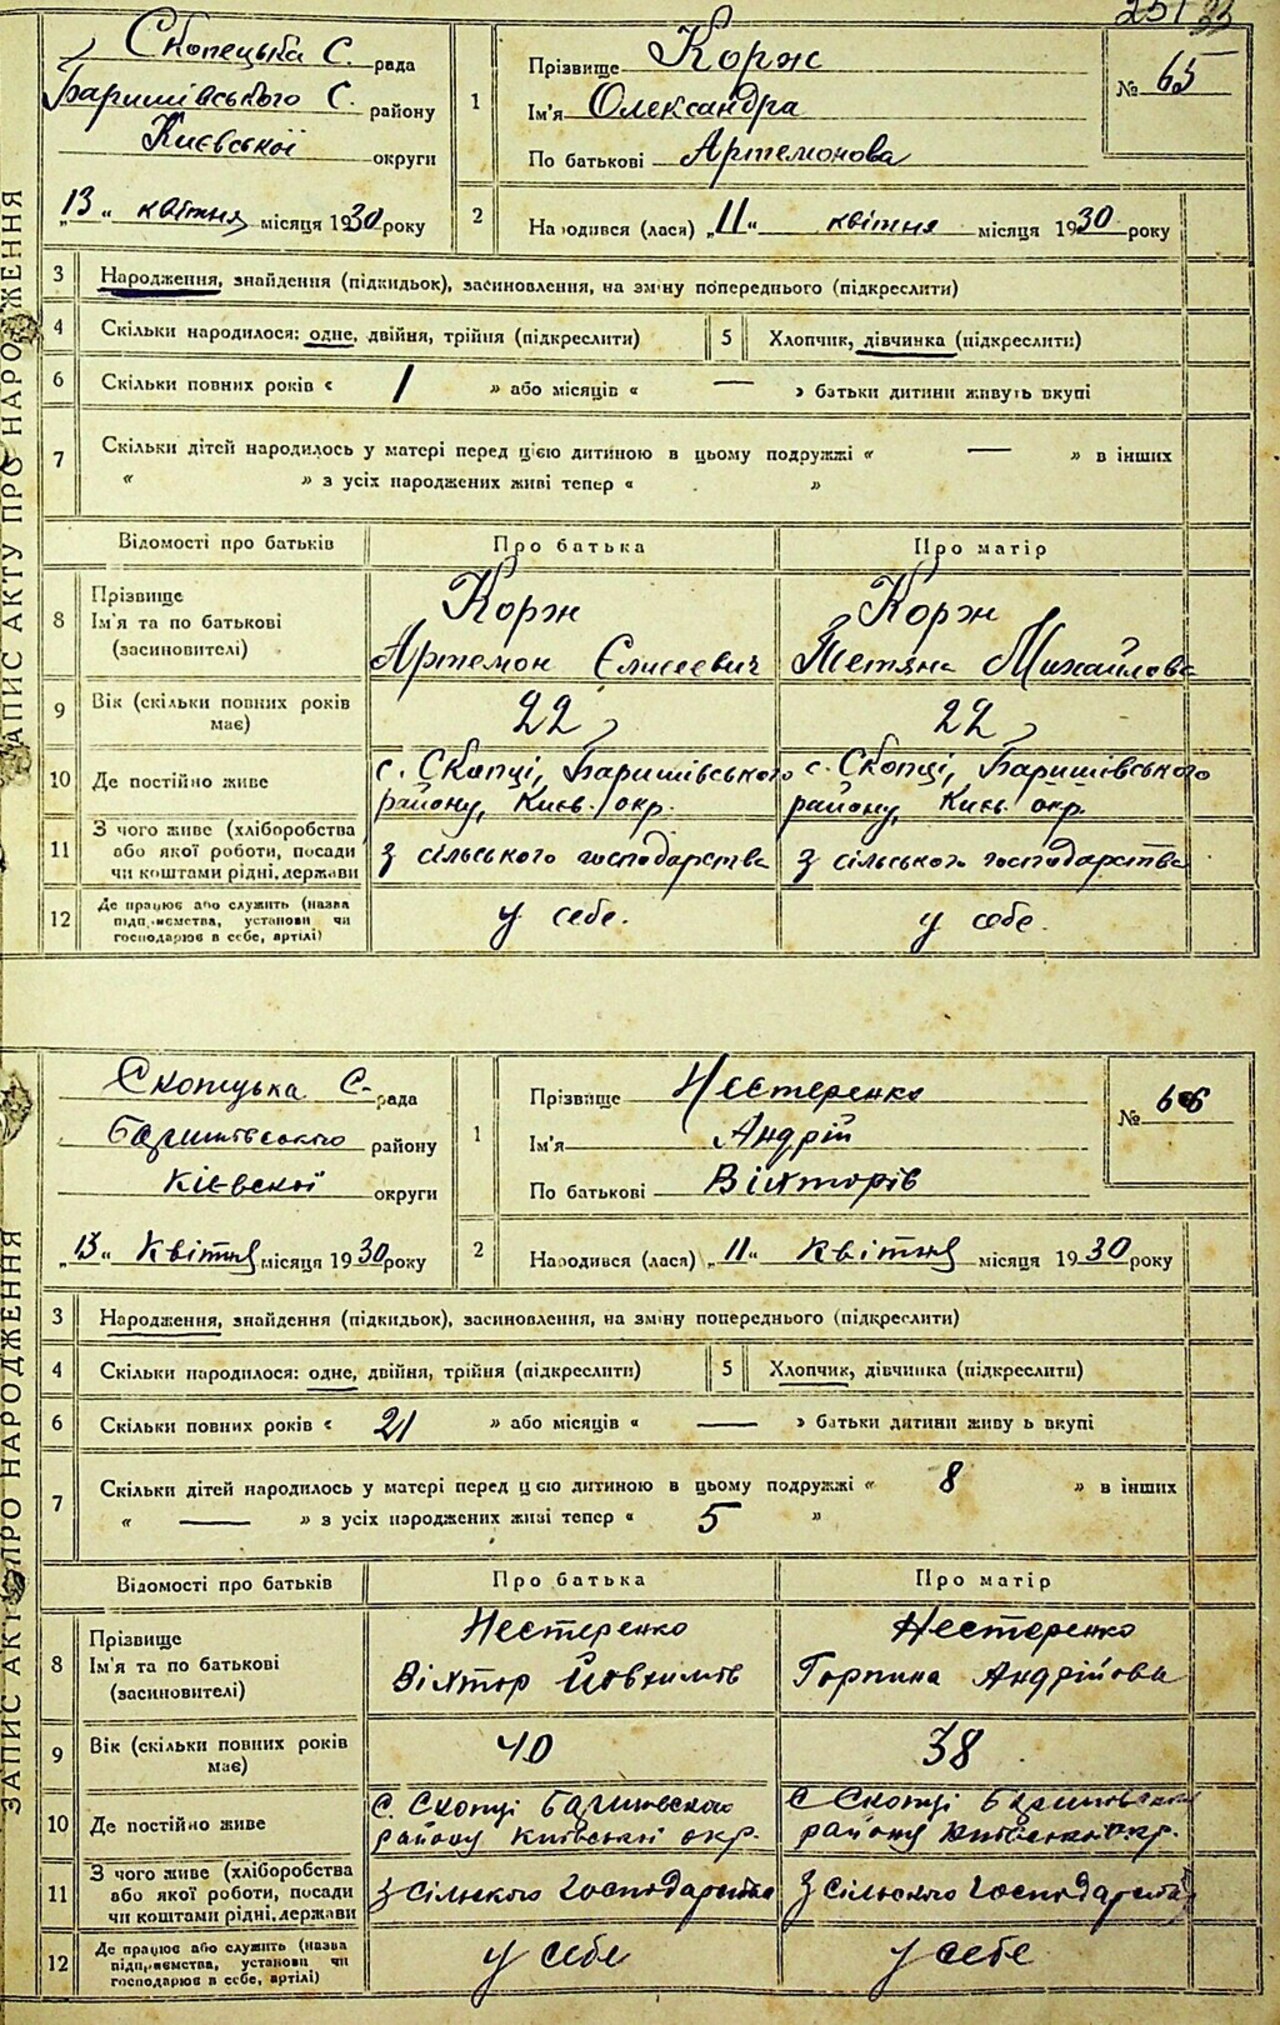 251 23
ЗАПИС АКТУ ПРО НАРОДЖЕННЯ
Скопецька С. рада
Баришівського С. району
Киевської округи
„13“ квітня місяця 1930 року
1
Прізвище Корж
Ім'я Олександра
По батькові Артемонова
№ 65
2
Народився (лася) „11“ квітня місяця 1930 року
3 Народження, знайдення (підкидьок), засиновлення, на зміну попереднього (підкреслити)
4 Скільки народилося: одне, двійня, трійня (підкреслити) 5 Хлопчик, дівчинка (підкреслити)
6 Скільки повних років « 1 » або місяців « — » батьки дитини живуть вкупі
7 Скільки дітей народилось у матері перед цією дитиною в цьому подружжі « — » в інших
« » з усіх народжених живі тепер « »
Відомості про батьків Про батька Про матір
8 Прізвище
Ім'я та по батькові
(засиновителі)
Корж
Артемон Єлисеевич
Корж
Тетяна Михайлова
9 Вік (скільки повних років
має)
22
22
10 Де постійно живе
с. Скопці, Баришівського
району, Києв. окр.
с. Скопці, Баришівського
району, Києв. окр.
11 З чого живе (хліборобства
або якої роботи, посади
чи коштами рідні, держави
З сільського господарства
З сільського господарства
12 Де працює або служить (назва
підприємства, установи чи
господарює в себе, артілі)
у себе.
у себе.
ЗАПИС АКТУ ПРО НАРОДЖЕННЯ
Скопецька С. рада
Баришівського району
Кієвскої округи
„13“ Квітня місяця 1930 року
1
Прізвище Нестеренко
Ім'я Андрій
По батькові Вікторів
№ 66
2
Народився (лася) „11“ Квітня місяця 1930 року
3 Народження, знайдення (підкидьок), засиновлення, на зміну попереднього (підкреслити)
4 Скільки народилося: одне, двійня, трійня (підкреслити) 5 Хлопчик, дівчинка (підкреслити)
6 Скільки повних років « 21 » або місяців « — » батьки дитини живу ь вкупі
7 Скільки дітей народилось у матері перед цією дитиною в цьому подружжі « 8 » в інших
« — » з усіх народжених живі тепер « 5 »
Відомості про батьків Про батька Про матір
8 Прізвище
Ім'я та по батькові
(засиновителі)
Нестеренко
Віктор Йовхимів
Нестеренко
Горпина Андрійова
9 Вік (скільки повних років
має)
40
38
10 Де постійно живе
С. Скопці Баришевского
району Київської окр.
С Скопці
району окр.
11 З чого живе (хліборобства
або якої роботи, посади
чи коштами рідні, держави
З сільского господарства
З сільского господарства
12 Де працює або служить (назва
підприємства, установи чи
господарює в себе, артілі)
у себе
у себе